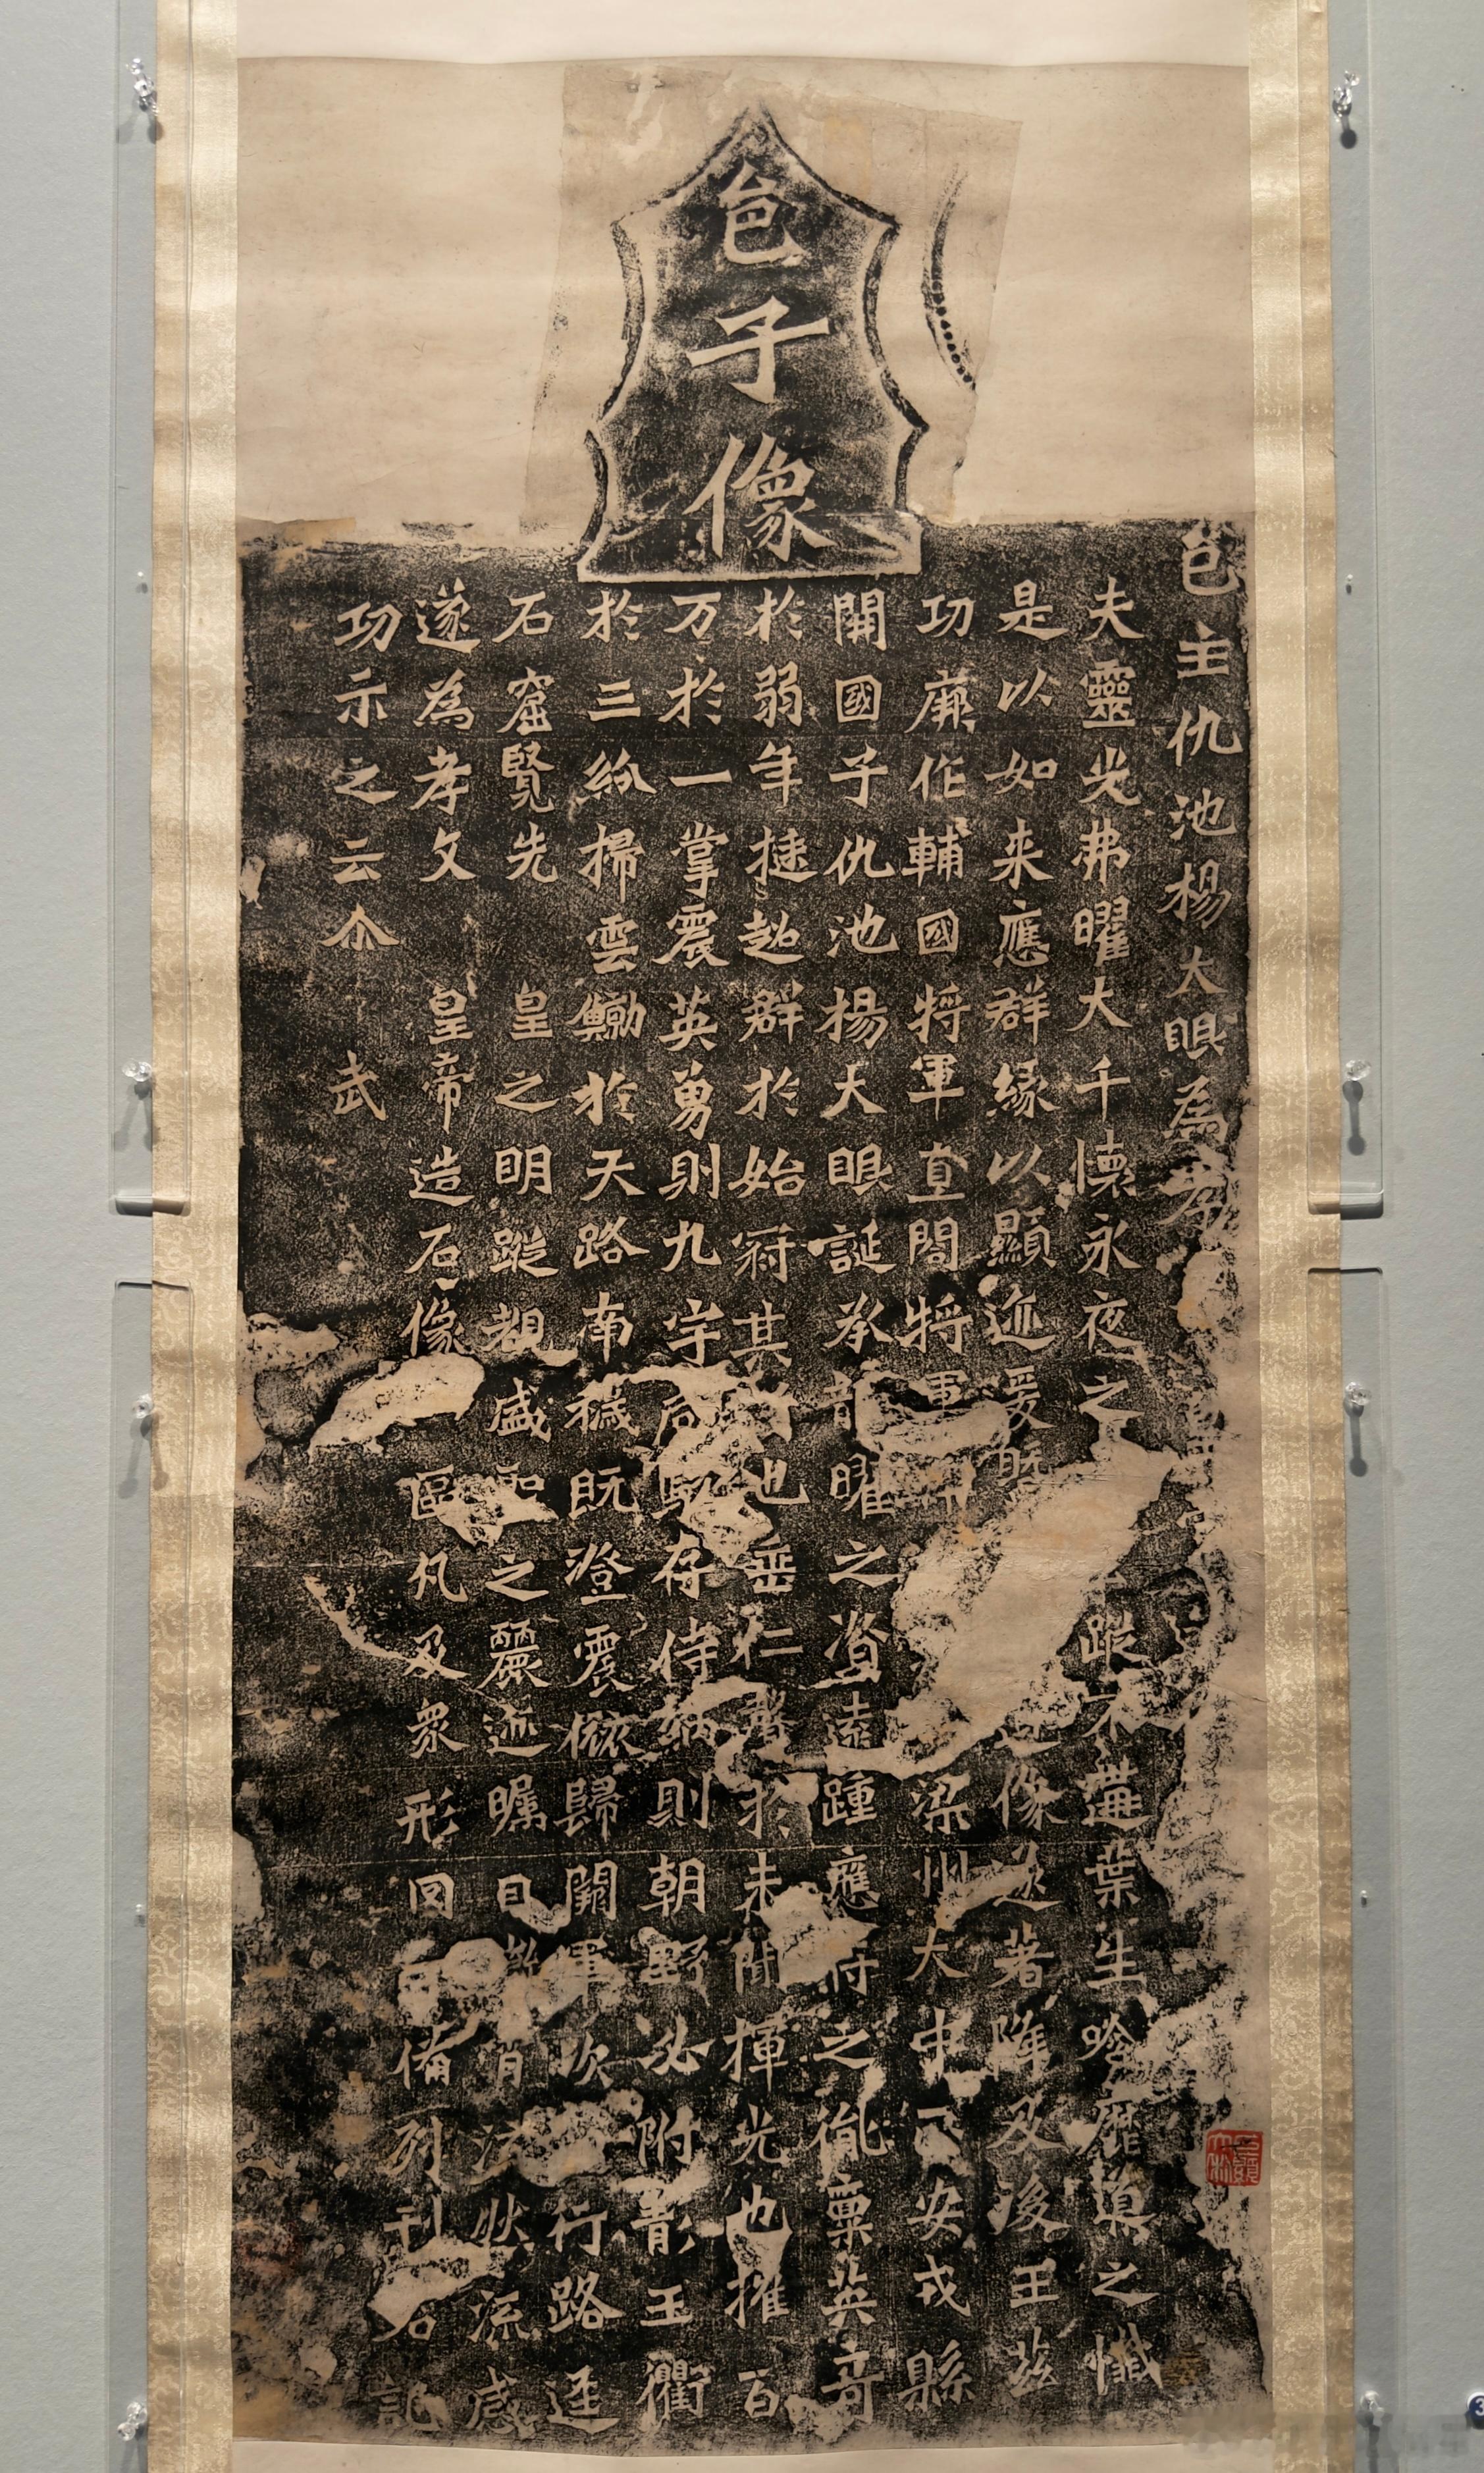 邑子像
邑主仇池楊大眼為孝
夫靈光弗曜大千懷永夜之蹤不遘葉生唅靡導之懺
是以如来應群緣以顯迹爰暨像遂著降及後王茲
功厥作輔國將軍直閤將軍梁州大中正安戎縣
開國子仇池楊大眼誕承龍曜之資遠踵應符之胤稟英奇
於弱年挺超群於始冠其也垂仁聲於未聞揮光也摧百
万於一掌震英勇則九宇咸駭存侍納則朝野必附清王衢
於三紛掃雲鯨於天路南穢既澄震旅歸闕軍次行路逕
石窟覽先皇之明蹤覩盛聖之麗迹矚目徹霄泫然流感
遂為孝文皇帝造石像區凡及眾形罔備列刊石記
功示之云尒武